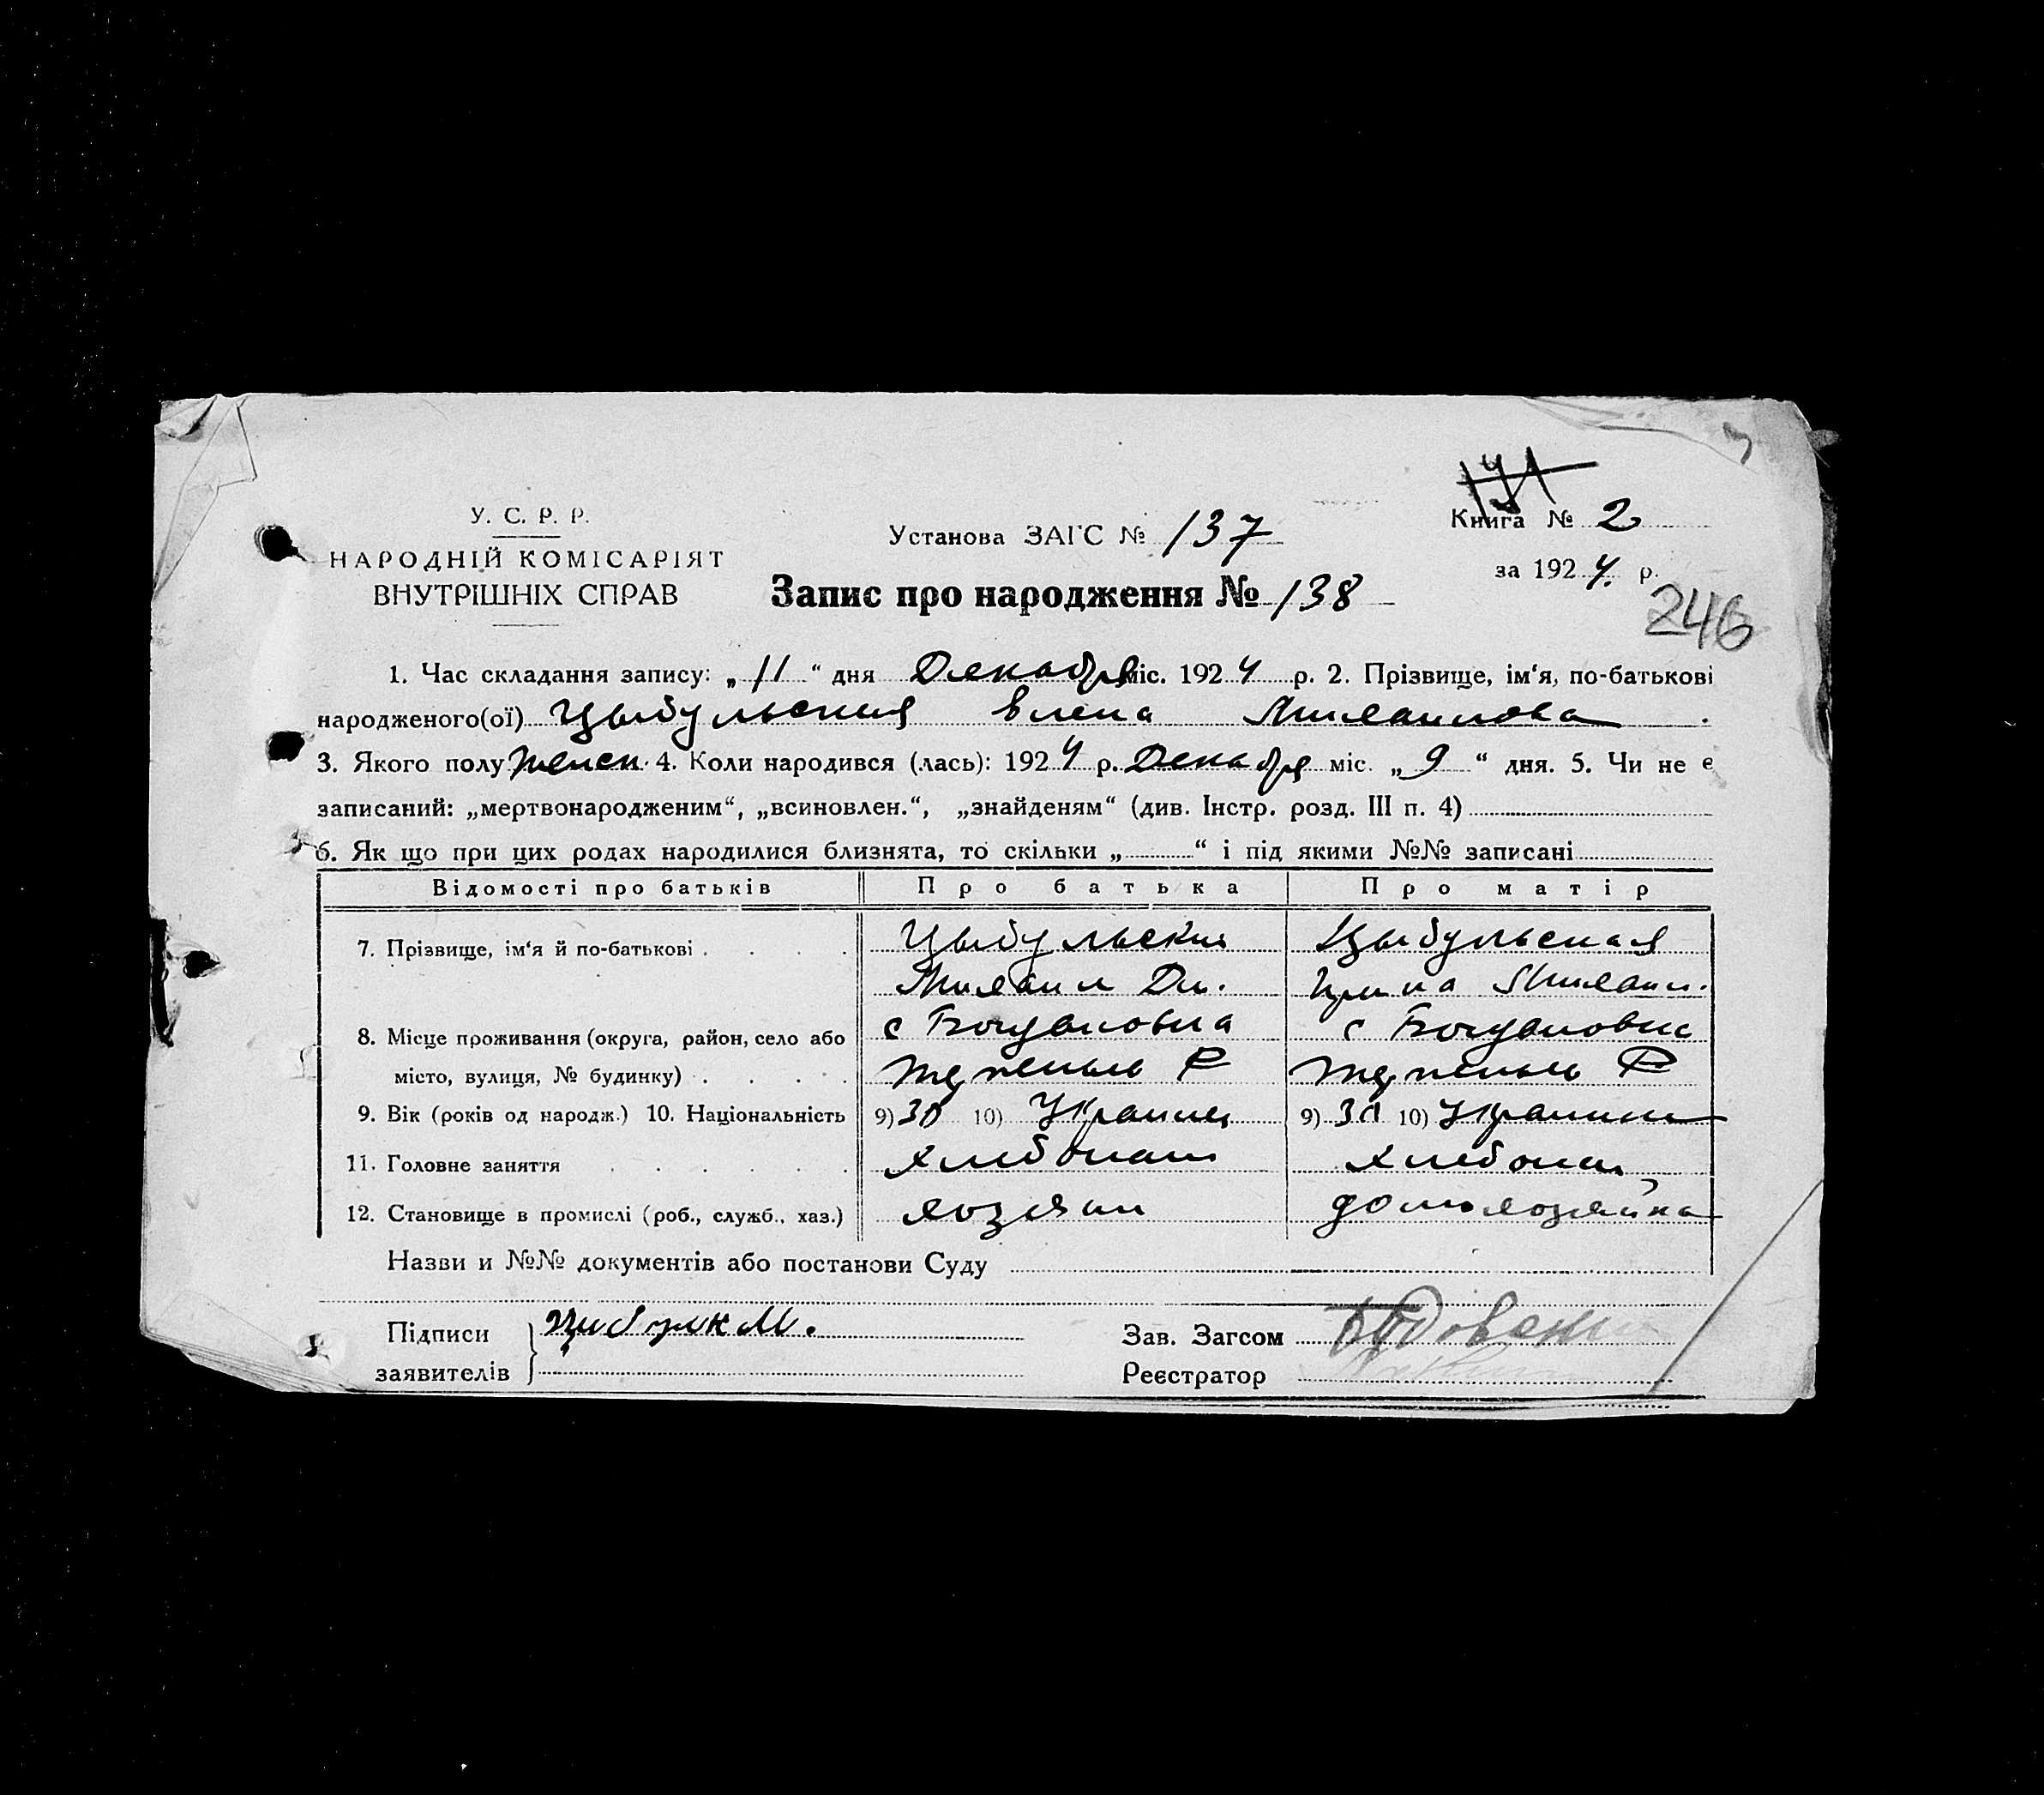 171
У. С. Р. Р.
НАРОДНІЙ КОМІСАРІЯТ
ВНУТРІШНІХ СПРАВ
Установа ЗАГС № 137
Запис про народження № 138
Книга № 2
за 1924. р.
246
1. Час складання запису: „ 11 “ дня Декабря міс. 1924 р. 2. Прізвище, ім‘я, по-батькові
народженого(ої) Цыбульская Елена Михаиловa
3. Якого полу женск. 4. Коли народився (лась): 1924 р. Декабря міс. „ 9 “ дня. 5. Чи не є
записаний: „мертвонародженим“, „всиновлен.“, „знайденям“ (див. Інстр. розд. III п. 4)
6. Як що при цих родах народилися близнята, то скільки „ “ і під якими №№ записані
Відомості про батьків Про батька Про матір
7. Прізвище, ім‘я й по-батькові Цыбульский Цыбульская
Михаил Дм. Ирина Михаил.
8. Місце проживання (округа, район, село або с Богдановка с Богдановка
місто, вулиця, № будинку) Р Р
9. Вік (років од народж.) 10. Національність 9) 30 10) Украинец 9) 30 10) Украинк
11. Головне заняття Хлебопаш Хлебопаш
12. Становище в промислі (роб., служб., хаз.) хозяин домохозяйка
Назви и №№ документів або постанови Суду
Підписи
заявителів Цибулк М.
Зав. Загсом
Реєстратор